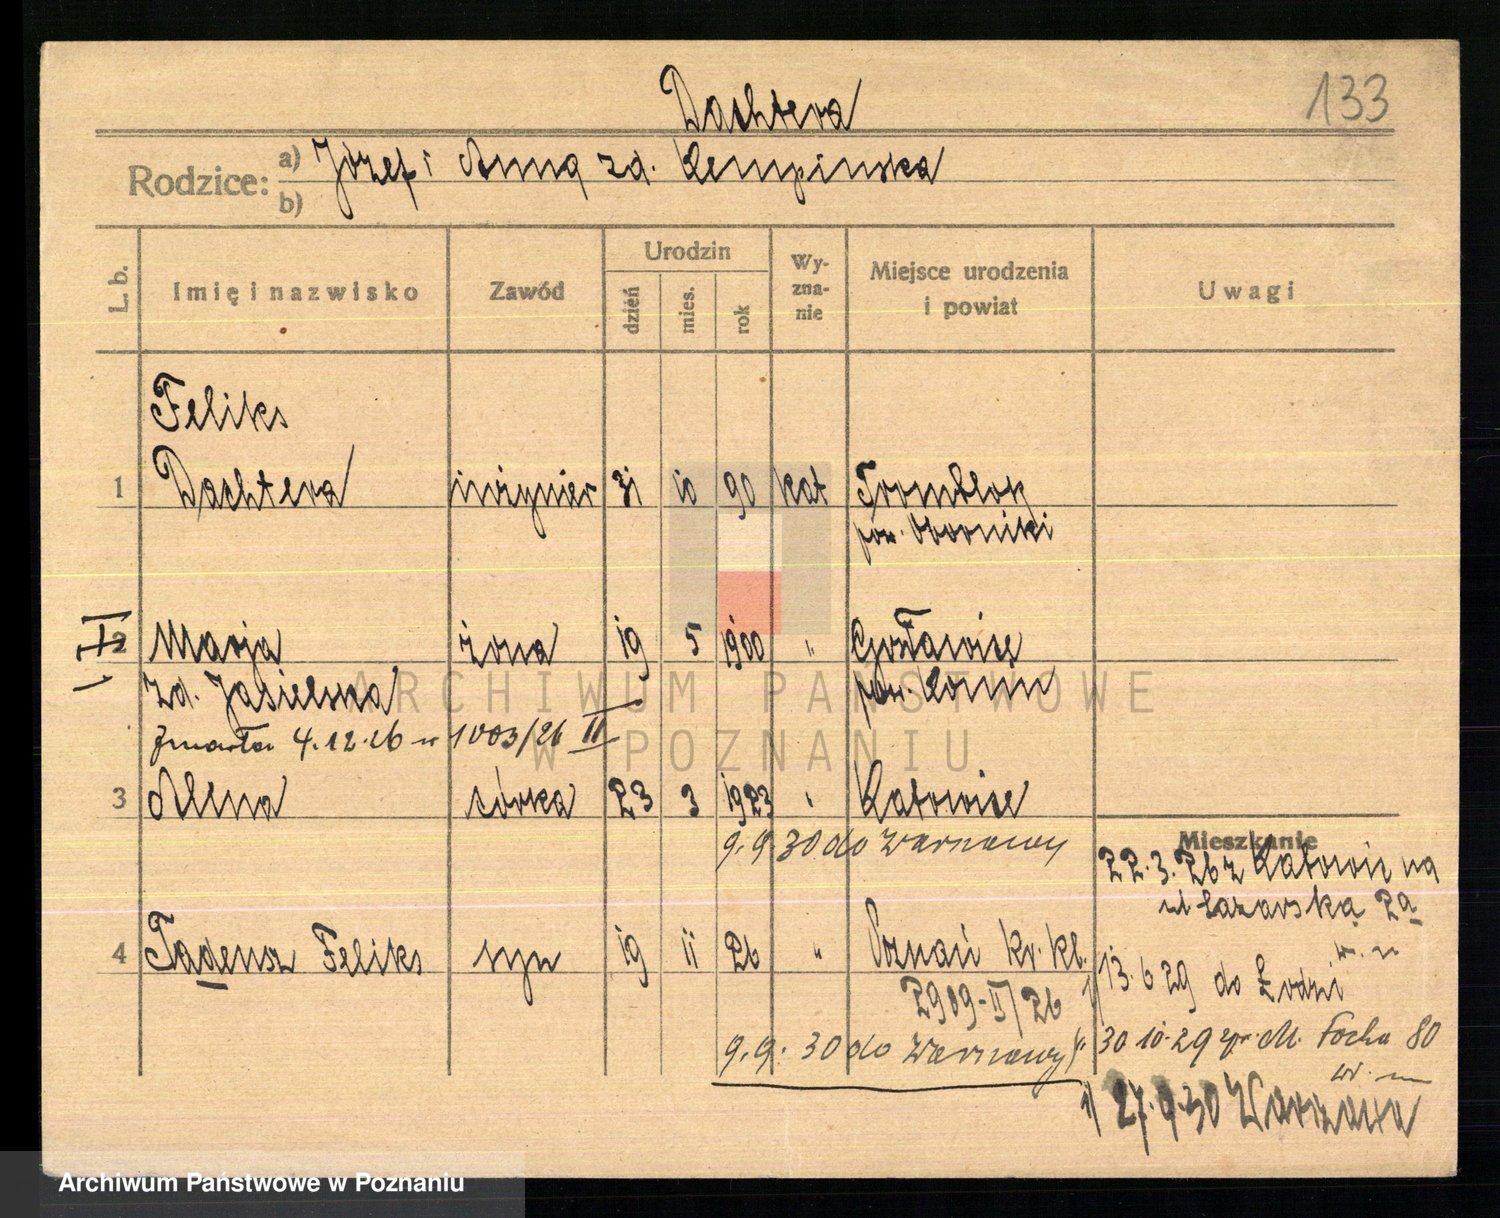 133
Dachtera
Rodzice: a) Józef i Anna zd. Kempinska
b)
L. b.
Imię i nazwisko
Zawód
Urodzin
dzień
mies.
rok
Wy-
zna-
nie
Miejsce urodzenia
i powiat
Uwagi
Feliks
1 Dachtera inżynier 31 10 90 kat
pow. Oborniki
2 Marja żona 19 5 1900 "
zd. Jasielska pow. Konin
zmarła 4.12.26 1003/26 II
3 Alena córka 23 3 1923 " Katowice
9.9.30 do Warszawy
Mieszkanie
22.3.26 z Katowic na
ul Łazarską 2a
4 Tadeusz Feliks syn 19 11 26 " Poznań
2909-II/26
13.6 29 do Łodzi
9.9. 30 do Warszawy
30 10.29 M. Focha 80
27.9.30 Warszawa
ARCHIWUM PAŃSTWOWE
W POZNANIU
Archiwum Państwowe w Poznaniu